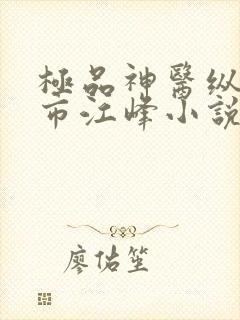 極品神醫纵
市江峰小說
廖佑笙